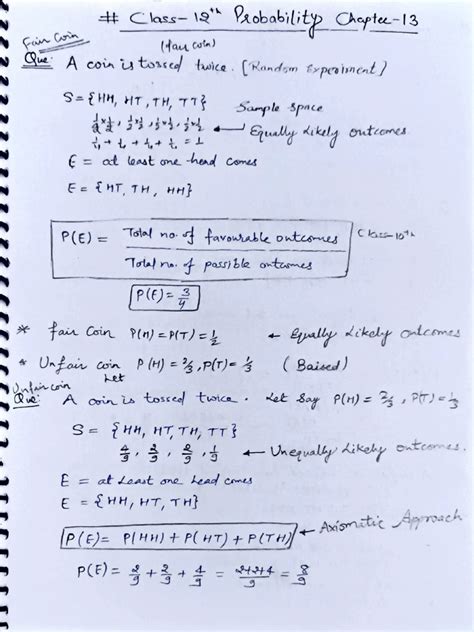 # Class-12th Probability Chapter-13
Fair Coin
(fair coin)
Que: A coin is tossed twice. (Random Experiment)
S = {HH, HT, TH, TT} Sample space
1/2 x 1/2, 1/2 x 1/2, 1/2 x 1/2, 1/2 x 1/2 ← Equally Likely outcomes
1/4 + 1/4 + 1/4 + 1/4 = 1
E = at least one head comes
E = {HT, TH, HH}
P(E) = Total no. of favourable outcomes / Total no. of possible outcomes Class-10th
P(E) = 3/4
* fair Coin P(H) = P(T) = 1/2 ← Equally Likely outcomes
* Unfair coin P(H) = 2/3, P(T) = 1/3 (Baised)
Let
Unfair coin
Que: A coin is tossed twice. Let Say P(H) = 2/3, P(T) = 1/3
S = {HH, HT, TH, TT}
4/9, 2/9, 2/9, 1/9 ← Unequally Likely outcomes.
E = at Least one Head comes
E = {HH, HT, TH}
P(E) = P(HH) + P(HT) + P(TH) ← Axiomatic Approach
P(E) = 2/9 + 2/9 + 4/9 = 2+2+4/9 = 8/9